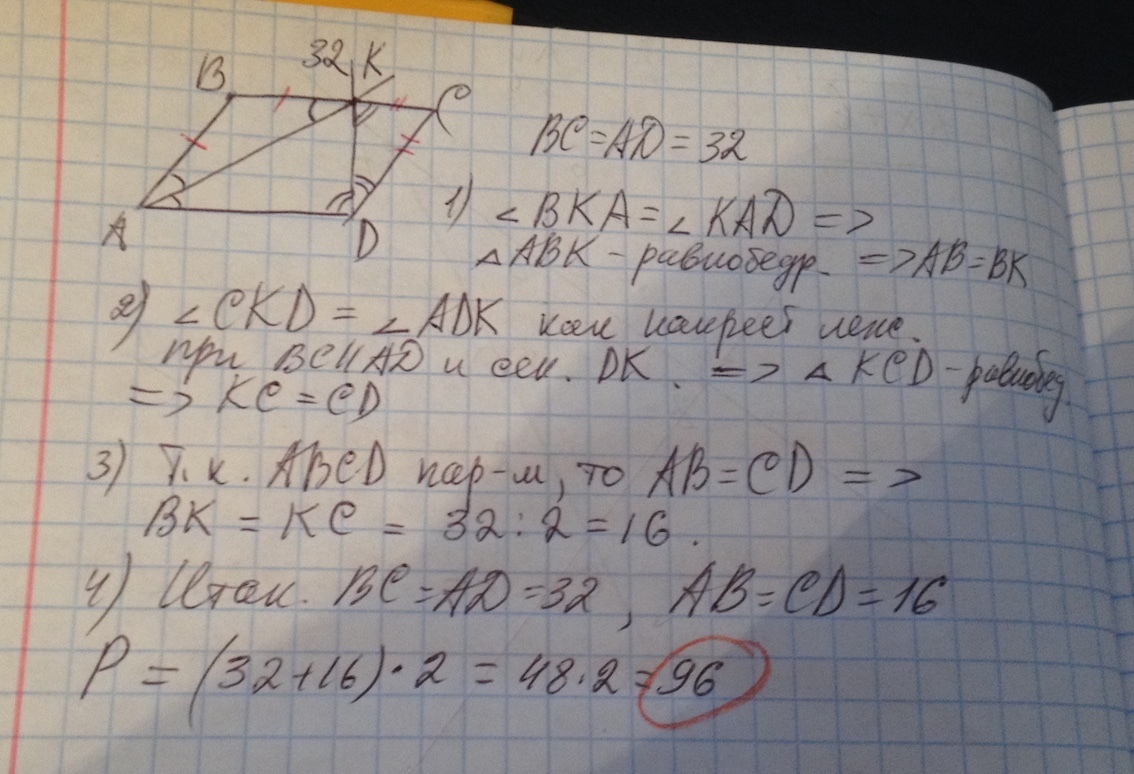 32 K
B
C
A
D
BC = AD = 32
1) ∠BKA = ∠KAD =>
△ABK - равнобедр. => AB = BK
2) ∠CKD = ∠ADK как накрест леж.
при BC || AD и сек. DK. => △ KCD - равнобед.
=> KC = CD
3) Т.к. ABCD пар-м, то AB = CD =>
BK = KC = 32 : 2 = 16.
4) Итак. BC = AD = 32, AB = CD = 16
P = (32+16)·2 = 48·2 = 96